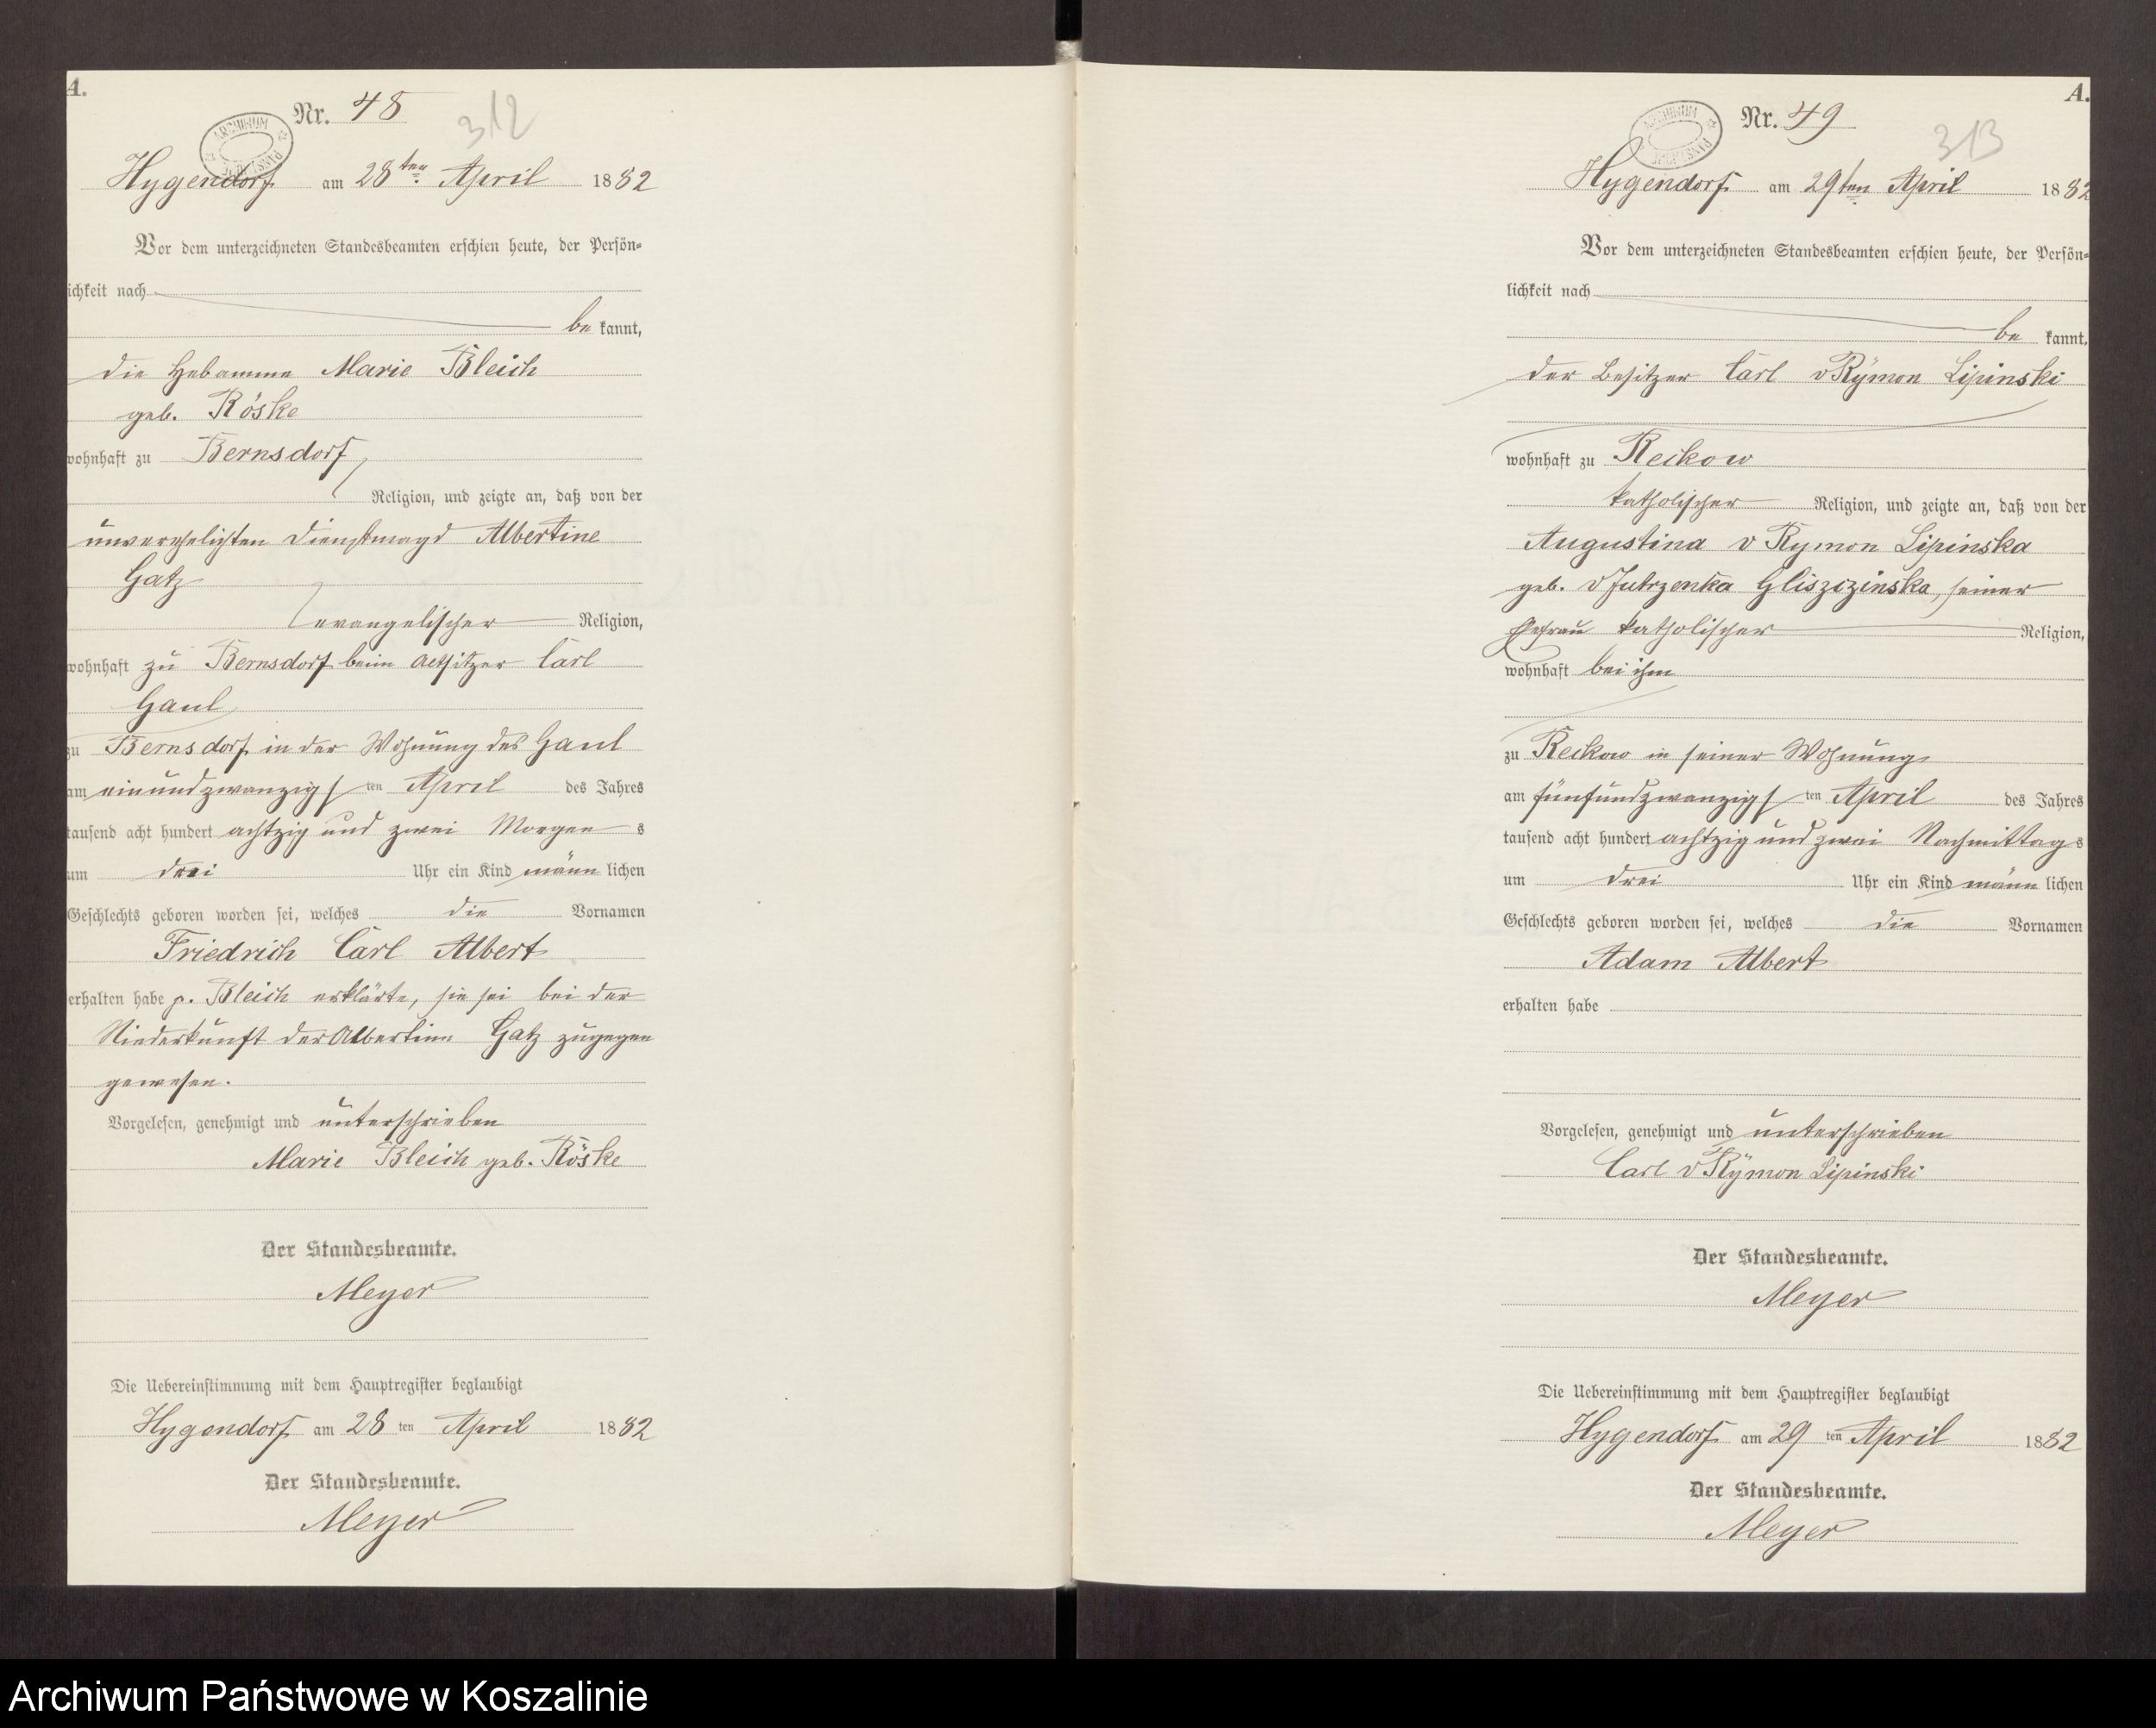 A.
Nr. 48
312
Hygendorf am 28ten April 1882
Vor dem unterzeichneten Standesbeamten erschien heute, der Persön=
ichkeit nach
be kannt,
die Hebamme Marie Bleich
geb. Röske
wohnhaft zu Bernsdorf,
Religion, und zeigte an, daß von der
unverehelichten Dienstmagd Albertine
Gatz
evangelischer Religion,
wohnhaft zu Bernsdorf beim Carl
Gaul
zu Bernsdorf in der Wohnung des Gaul
am einundzwanzigsten April des Jahres
tausend acht hundert achtzig und zwei Morgens
um drei Uhr ein Kind männlichen
Geschlechts geboren worden sei, welches die Vornamen
Friedrich Carl Albert
erhalten habe p. Bleich erklärte, sie sei bei der
Niederkunft der Albertine Gatz zugegen
gewesen.
Vorgelesen, genehmigt und unterschrieben
Marie Bleich geb. Röske
Der Standesbeamte.
Meyer
Die Uebereinstimmung mit dem Hauptregister beglaubigt
Hygendorf am 28ten April 1882
Der Standesbeamte.
Meyer
A.
Nr. 49
313
Hygendorf am 29ten April 1882
Vor dem unterzeichneten Standesbeamten erschien heute, der Persön=
lichkeit nach
be kannt,
der Besitzer Carl v Rymon Lipinski
wohnhaft zu Reckow
katholischer Religion, und zeigte an, daß von der
Augustina v Rymon Lipinska
geb. v Jutrzenka Gliszczinska, seiner
Ehefrau katholischer Religion,
wohnhaft bei ihm
zu Reckow in seiner Wohnung
am fünfundzwanzigsten April des Jahres
tausend acht hundert achtzig und zwei Nachmittags
um drei Uhr ein Kind männlichen
Geschlechts geboren worden sei, welches die Vornamen
Adam Albert
erhalten habe
Vorgelesen, genehmigt und unterschrieben
Carl v Rymon Lipinski
Der Standesbeamte.
Meyer
Die Uebereinstimmung mit dem Hauptregister beglaubigt
Hygendorf am 29ten April 1882
Der Standesbeamte.
Meyer
Archiwum Państwowe w Koszalinie